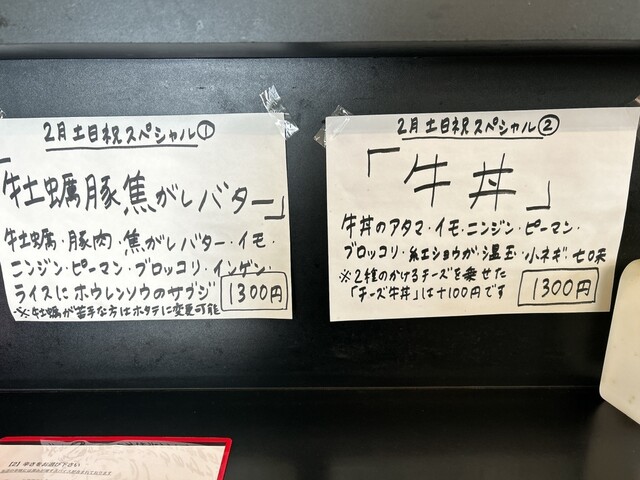 2月 土日祝スペシャル①
「牡蠣豚焦がしバター」
牡蠣・豚肉・焦がしバター・イモ・
ニンジン・ピーマン・ブロッコリ・インゲン
ライスにホウレンソウのサブジ
1300円
※牡蠣が苦手な方はホタテに変更可能
2月 土日祝スペシャル②
「牛丼」
牛丼のアタマ・イモ・ニンジン・ピーマン・
ブロッコリ・紅ショウガ・温玉・小ネギ・七味
※2種のかけるチーズを乗せた
「チーズ牛丼」は+100円です
1300円
【2】辛さをお選び下さい